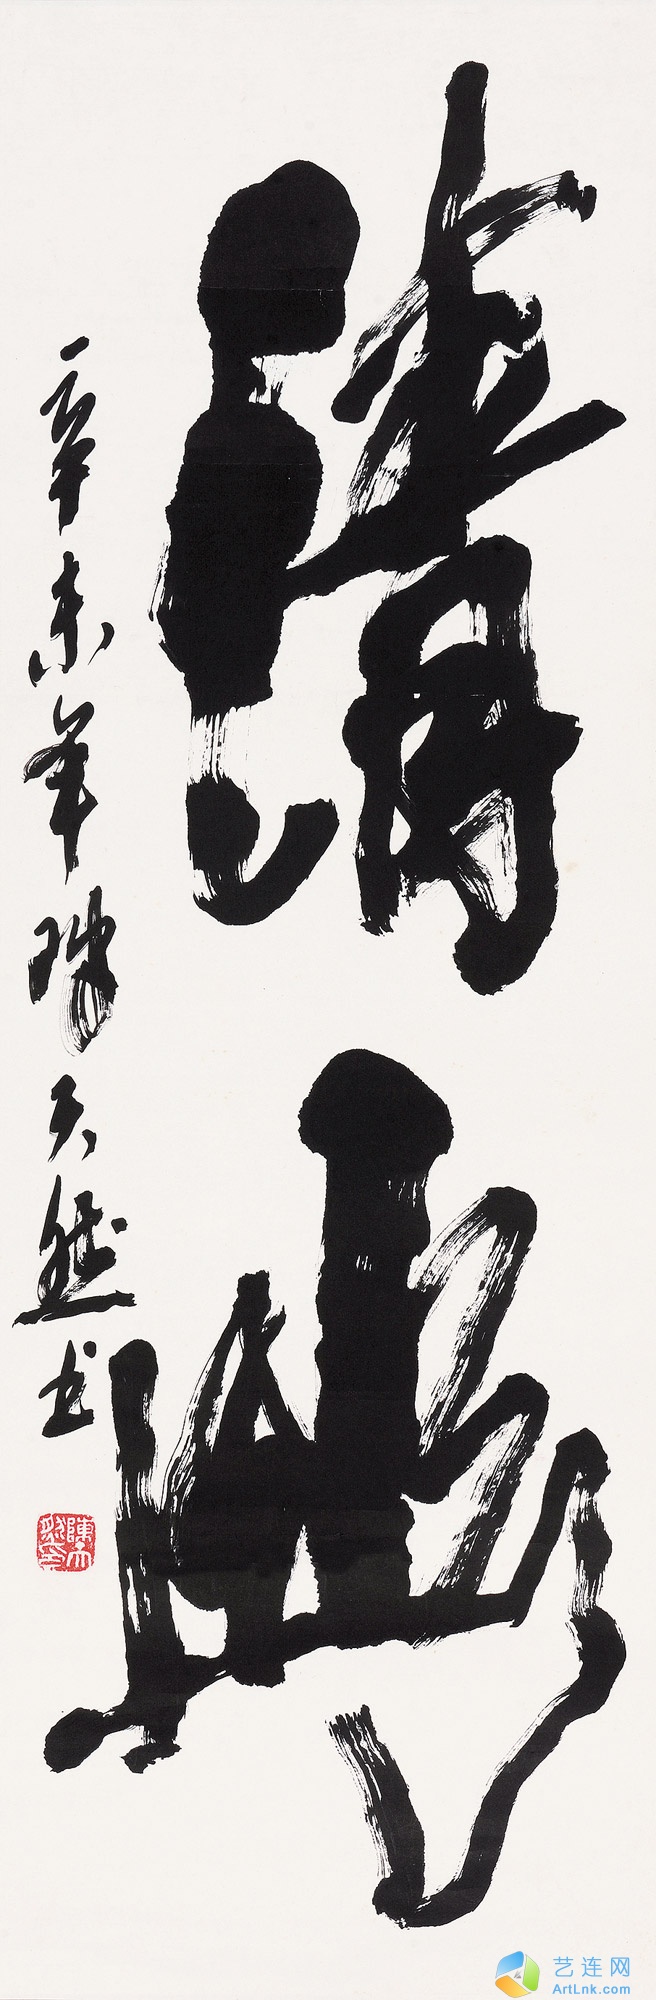 清幽
辛未年 陈天然书
陳天然印
艺连网
ArtLnk.com